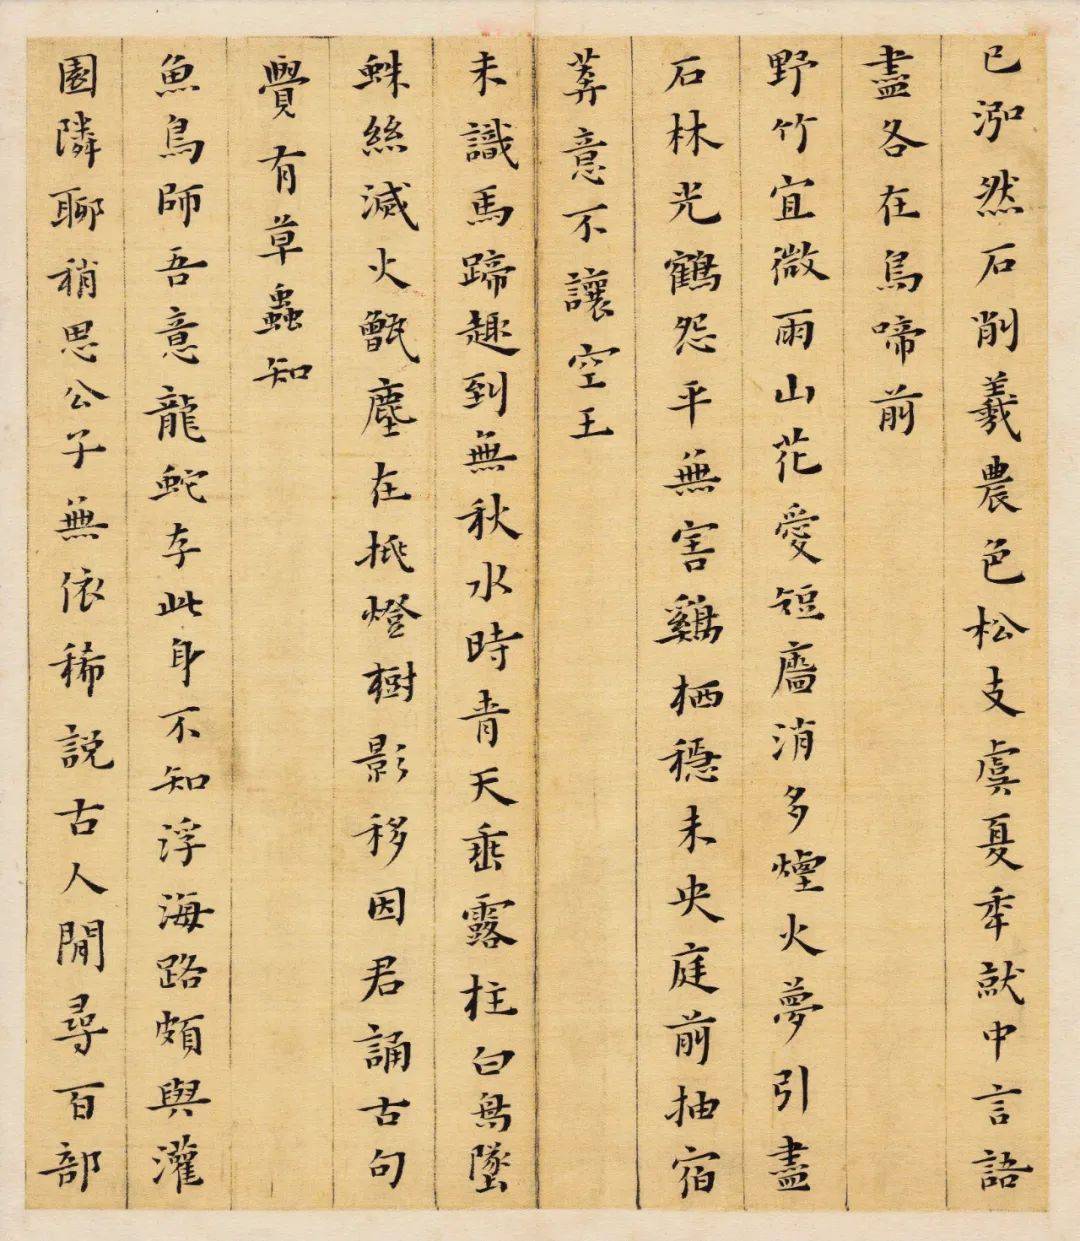 已泓然石削羲農色松支虞夏年試中言語
盡各在鳥啼前
野竹宜微雨山花愛短廧消多煙火夢引盡
石林光鶴怨平無害鷄栖穩未央庭前抽宿
莽意不讓空王
未識馬蹄趣到無秋水時青天垂露柱白鳥墜
蛛絲滅火甑塵在挑燈樹影移因君誦古句
覺有草蟲知
魚鳥師吾意龍蛇存此身不知浮海路頗與灌
園隣聊稍思公子無依稀說古人閒尋百部